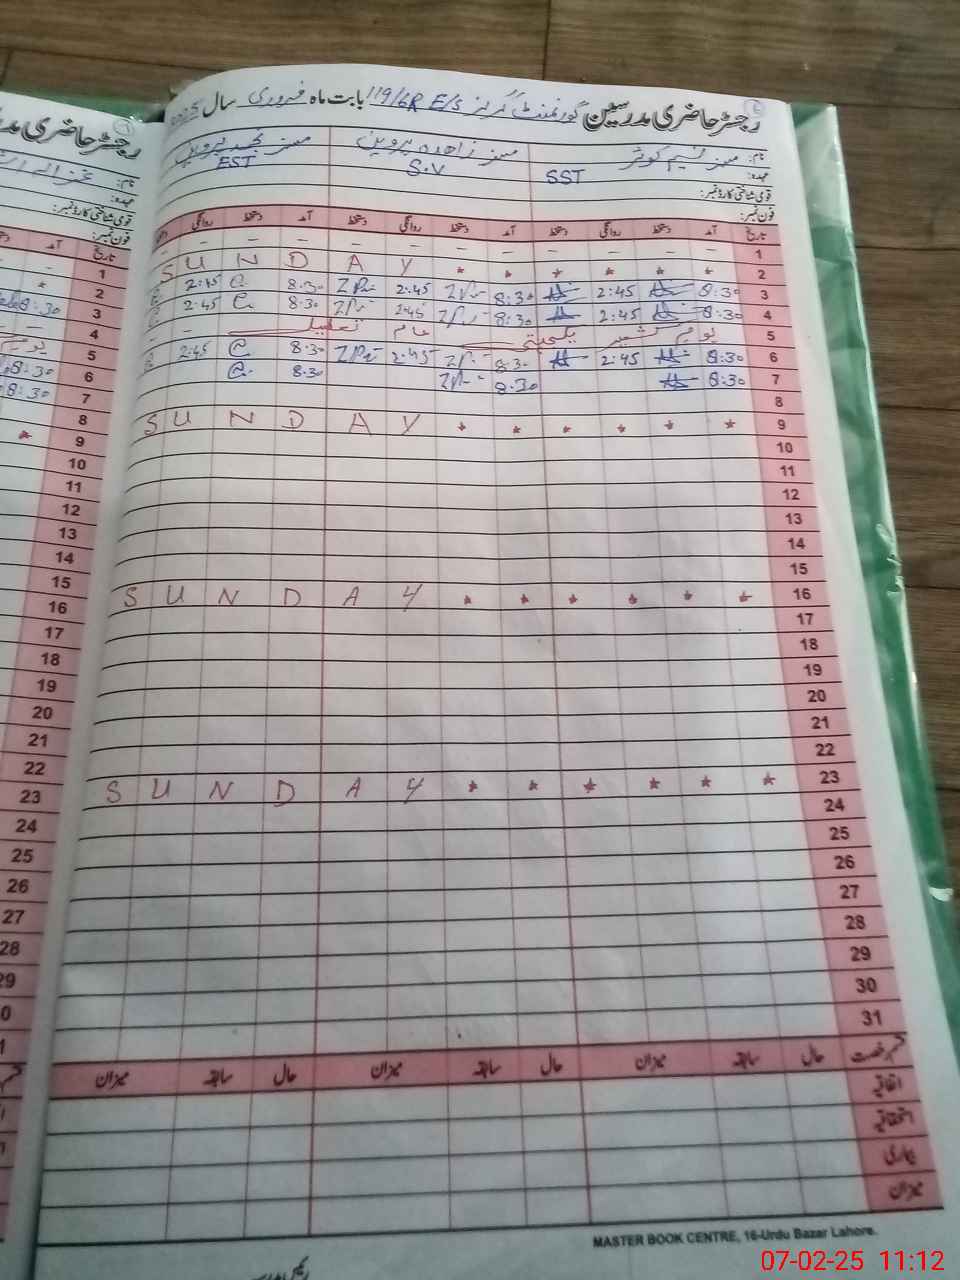 رجسٹر حاضری مدرسین گورنمنٹ گرلز 119/6R E/S بابت ماہ فروری سال 2025
نام: مسز نسیم کوثر مسز زاہدہ پروین مسز نجمہ پروین
عہدہ: SST S.V EST
قومی شناختی کارڈ نمبر:
فون نمبر:
تاریخ آمد دستخط روانگی دستخط آمد دستخط روانگی دستخط آمد دستخط روانگی
1 – – – – – – – – – – –
2 S U N D A Y * * * * * *
3 8:30 2:45 8:30 2:45 8:30 2:45
4 8:30 2:45 8:30 2:45 8:30 2:45
5 یوم کشمیر یکجہتی عام تعطیل
6 8:30 2:45 8:30 2:45 8:30 2:45
7 8:30 8:30 8:30
8
9 S U N D A Y * * * * * *
10
11
12
13
14
15
16 S U N D A Y * * * * * *
17
18
19
20
21
22
23 S U N D A Y * * * * * *
24
25
26
27
28
29
30
31
قسم رخصت حال سابقہ میزان حال سابقہ میزان حال سابقہ میزان
اتفاقیہ
استحقاقیہ
بیماری
میزان
MASTER BOOK CENTRE, 16-Urdu Bazar Lahore.
رجسٹر حاضری
نام:
عہدہ:
قومی شناختی کارڈ نمبر:
فون نمبر:
تاریخ آمد
1 –
2 *
3 8:30
4 –
5 یوم
6 8:30
7 8:30
8
9 *
10
11
12
13
14
15
16
17
18
19
20
21
22
23
24
25
26
27
28
29
07-02-25 11:12